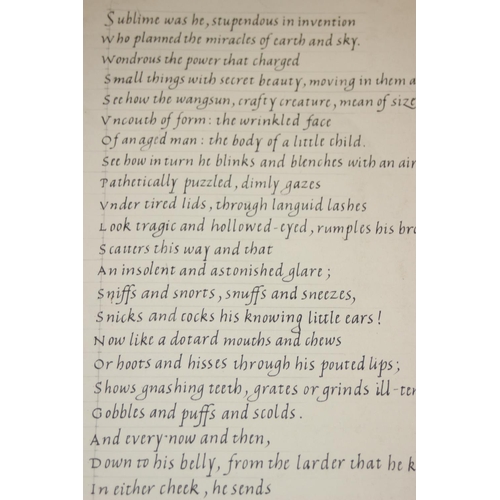 Sublime was he, stupendous in invention
Who planned the miracles of earth and sky.
Wondrous the power that charged
Small things with secret beauty, moving in them a
See how the wangsun, crafty creature, mean of size
Vncouth of form: the wrinkled face
Of an aged man: the body of a little child.
See how in turn he blinks and blenches with an air
Pathetically puzzled, dimly gazes
Vnder tired lids, through languid lashes
Look tragic and hollowed-eyed, rumples his bro
Scatters this way and that
An insolent and astonished glare;
Sniffs and snorts, snuffs and sneezes,
Snicks and cocks his knowing little ears!
Now like a dotard mouths and chews
Or hoots and hisses through his pouted lips;
Shows gnashing teeth, grates or grinds ill-ten
Gobbles and puffs and scolds.
And every now and then,
Down to his belly, from the larder that he k
In either cheek, he sends